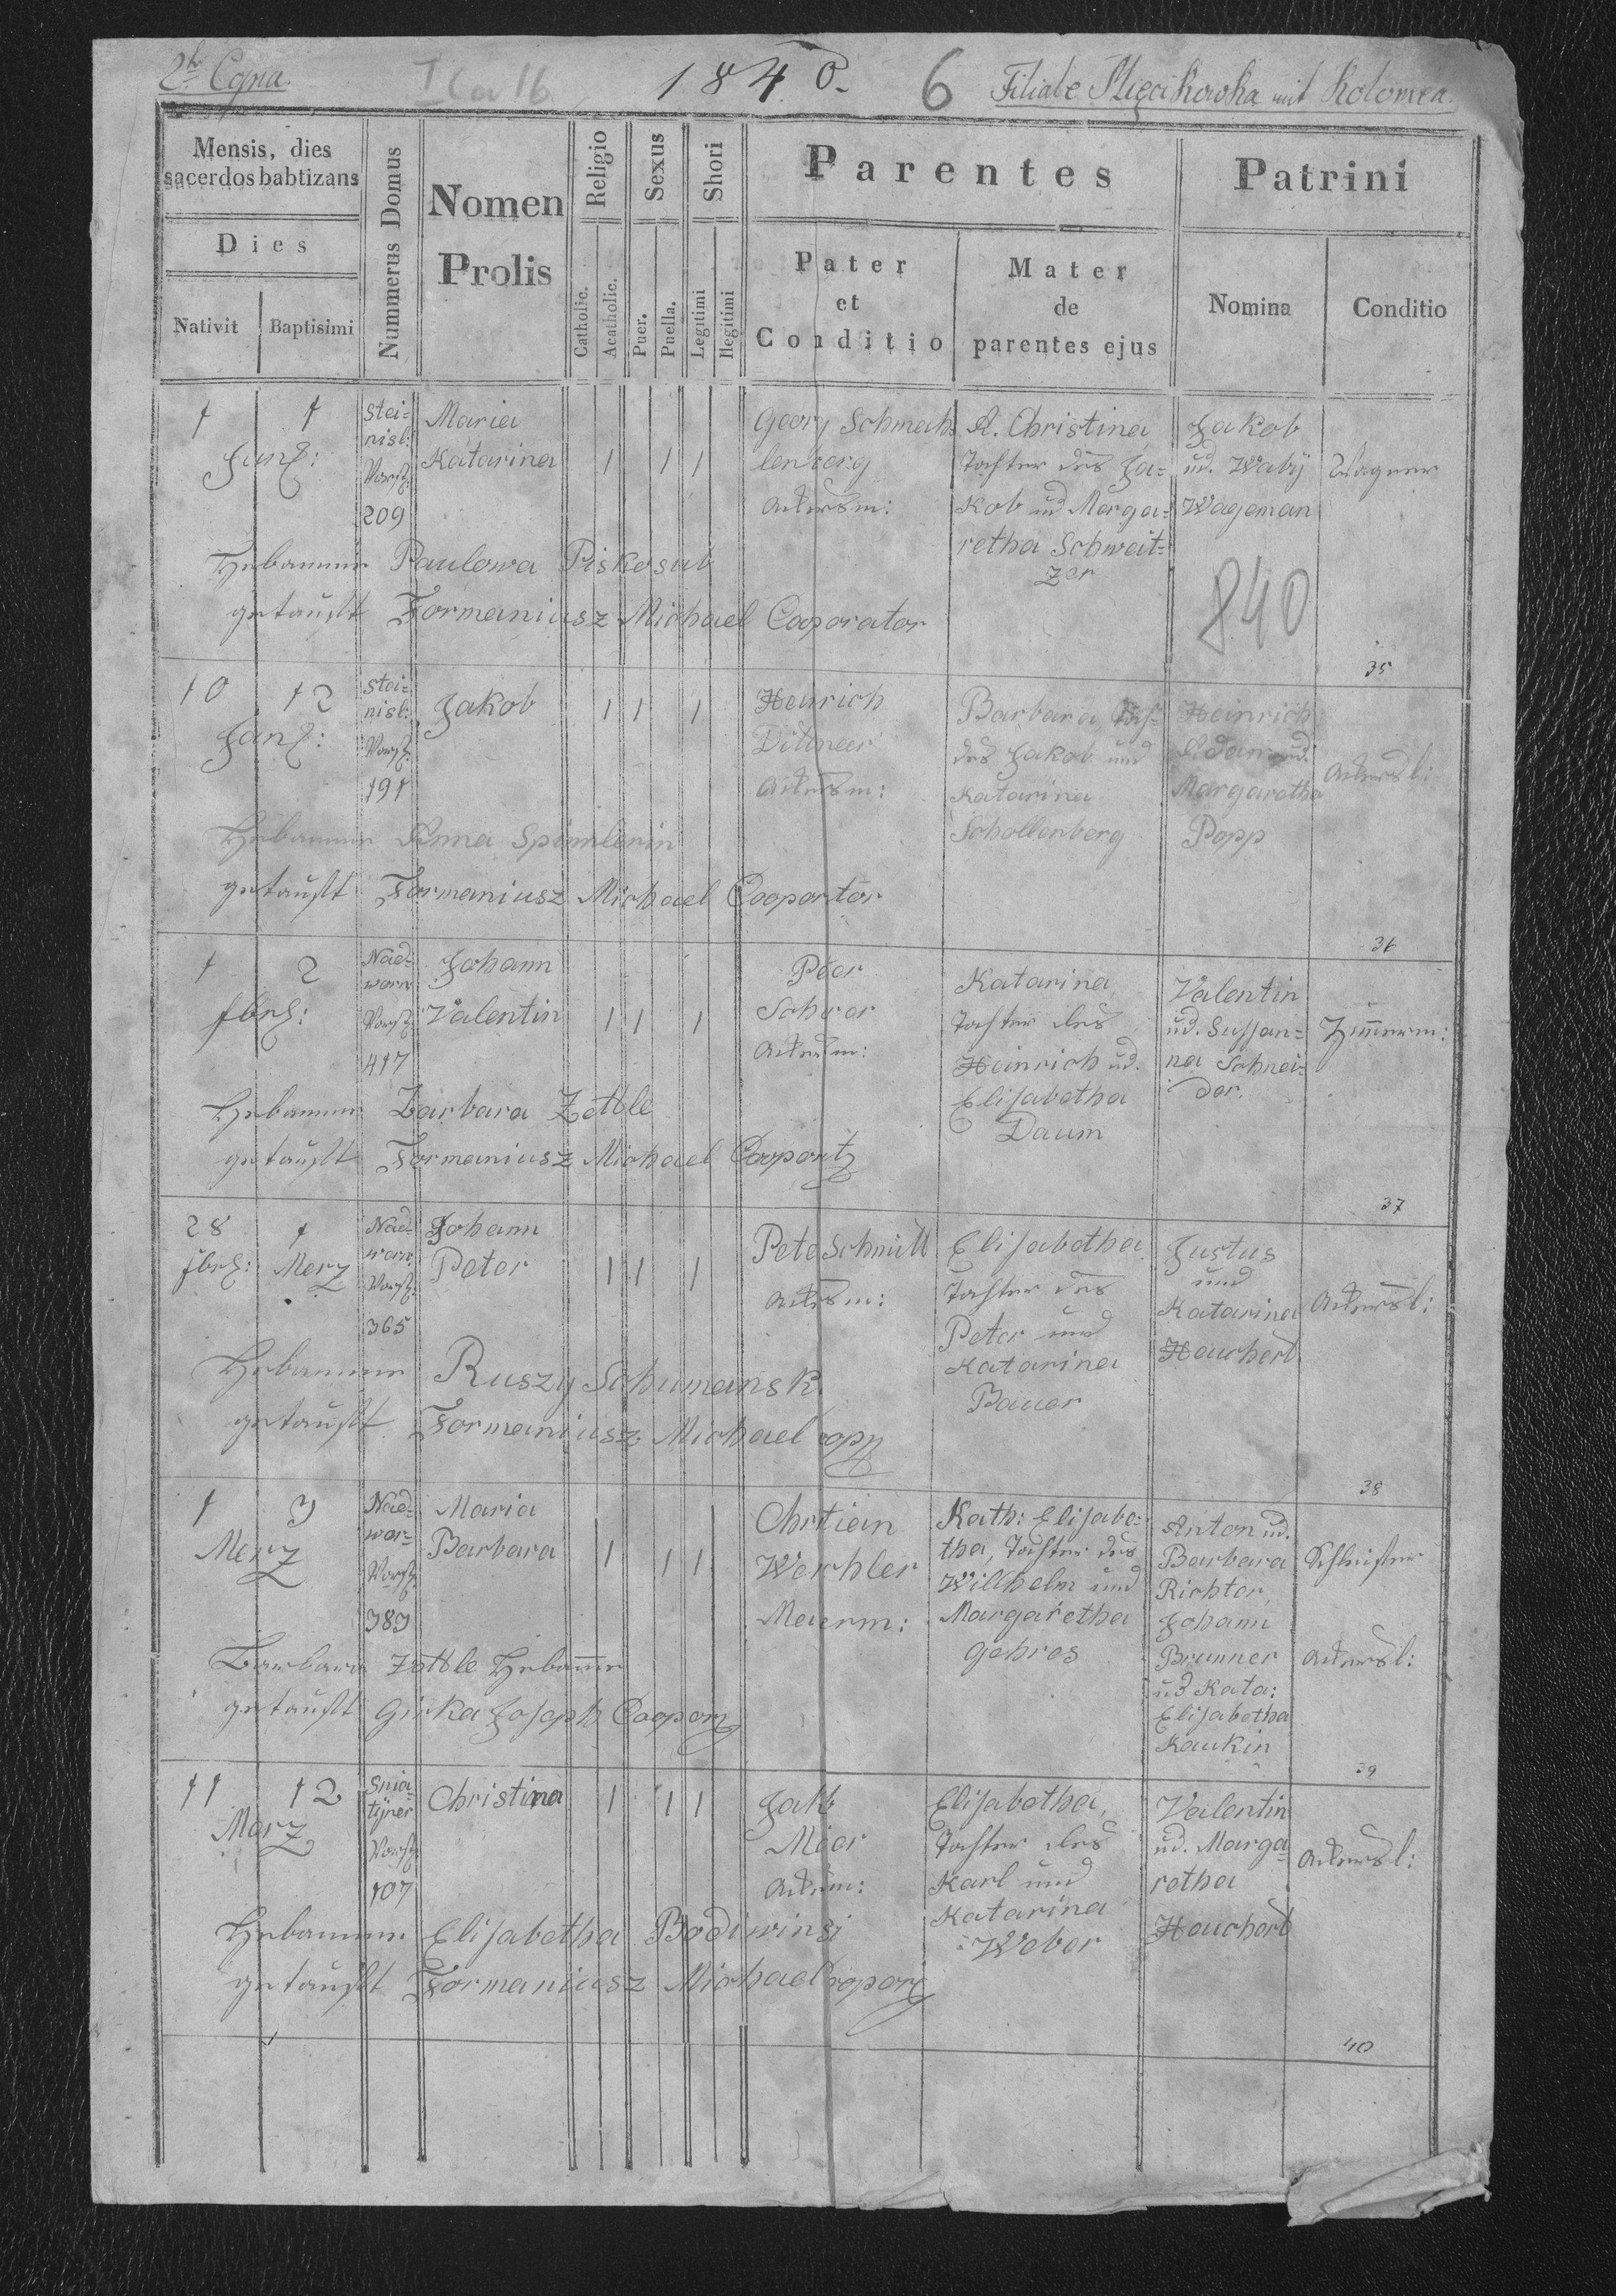 2te Copia.
1840.
6
Filiale Mięcikowka mit Kolomea.
Mensis, dies
sacerdos babtizans
Dies
Nativit
Baptisimi
Nummerus Domus
Nomen
Prolis
Religio
Catholic.
Acatholic.
Sexus
Puer.
Puella.
Shori
Legitimi
Ilegitimi
Parentes
Pater
et
Conditio
Mater
de
parentes ejus
Patrini
Nomina
Conditio
1 1
Janz:
Stei=
nisl:
Vorst:
209
Maria
Katarina
1 1 1
Georg Schmah
lenberg
Akersm:
A. Christina
Tochter des Ja=
kob und Marga=
retha Schweit=
zer
Jakob
ud. Waby
Wageman
Wagner
Hebamme Paulowa Piskosub
getauft Formaniusz Michael Cooporator
840
35
10 12
Janz:
Stei=
nisl:
Vorst:
191
Jakob
1 1 1
Heinrich
Ditmar
Akersm:
Barbara
des Jakob und
Katarina
Schollenberg
Heinrich
Adam und
Margaretha
Popp
Akersl:
Hebamme Anna Spimlerin
getauft Formaniusz Michael Cooportor
36
1 2
fbrl:
Nad=
worn
Vorst:
417
Johann
Valentin
1 1 1
Peer
Schwer
Akersm:
Katarina
Tochter des
Heinrich ud.
Elisabetha
Daum
Valentin
ud. Sussan=
na Schnei=
der.
Zimmerm:
Hebamme Barbara Zettle
getauft Formaniusz Michael Cooport
37
28 1
fbrl: Merz
Nad=
worn
Vorst:
365
Johann
Peter
1 1 1
Pete Schmitt
Akersm:
Elisabetha
Tochter des
Peter und
Katarina
Bauer
Justus
und
Katarina
Hauchert
Akersl:
Hebamme Ruszy Schumansk
getauft Formaniusz Michael
38
1 3
Merz
Nad=
wor=
Vorst:
383
Maria
Barbara
1 1 1
Chrtian
Werhler
Maurm:
Kath: Elisabe=
tha, Tochter des
Willhelm und
Margaretha
Gehres
Anton ud.
Barbara
Richter,
Johann
Brunner
ud Kata:
Elisabetha
Kaukin
Schuster
Akersl:
Barbara Zettle Hebamme
getauft Girka Joseph Coopor
39
11 12
Merz
Snia
tyner
Vorst
107
Christina
1 1 1
Jakb
Mier
Akersm:
Elisabetha,
Tochter des
Karl und
Katarina
Weber
Valentin
ud. Marga=
retha
Hauchert
Akersl:
Hebamme Elisabetha Bodiwinsi
getauft Formaniusz Michael
40